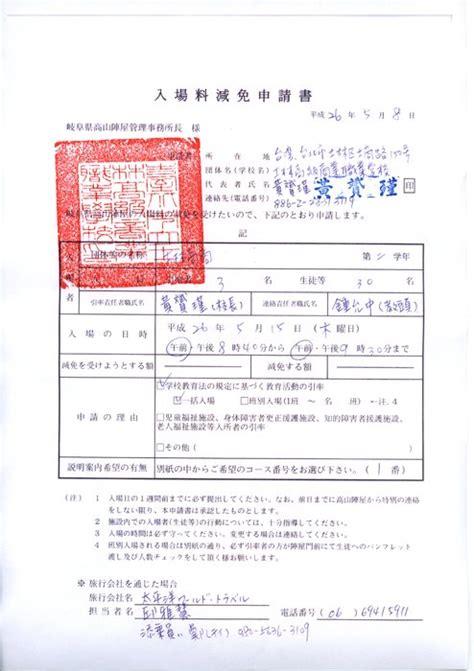 入場料減免申請書
平成 26 年 5 月 8 日
岐阜県高山陣屋管理事務所長 様
所在地
団体名(学校名)
代表者氏名 黄贇瑾 黄贇瑾 印
連絡先(電話番号) 886-2-
岐阜県高山陣屋の入場料の減免を受けたいので、下記のとおり申請します。
記
団体等の名称 第二学年
3 名 生徒等 30 名
者 引率責任者職氏名 黄贇瑾(校長) 連絡責任者職氏名 鍾允中(教頭)
入場の日時 平成 26 年 5 月 15 日 (木曜日)
午前・午後 8 時 40 分から 午前・午後 9 時 30 分まで
減免を受けようとする額 減免する額
申請の理由
☑学校教育法の規定に基づく教育活動の引率
☑一括入場 □班別入場(1班 ~ 名) ←注.4
□児童福祉施設、身体障害者更正援護施設、知的障害者援護施設、
老人福祉施設等入所者の引率
□その他( )
説明案内希望の有無 別紙の中からご希望のコース番号をお選び下さい。( 1 番)
(注) 1 入場日の1週間前までに必ず提出してください。なお、前日までに高山陣屋から特別の連絡
をしない限り、本申請書は承認したものとします。
2 施設内での入場者(生徒等)の行動については、十分指導してください。
3 入場の時間は必ず守ってください。変更する場合は連絡してください。
4 班別入場される場合は別紙の通り、必ず引率者の方が陣屋門前にて生徒へのパンフレット
渡し及び人数チェックをして頂く様お願いします。
※ 旅行会社を通じた場合
旅行会社名 太平洋ワールドトラベル
担当者名 邱雅慧 電話番号 (06) 69415911
添乗員 080-5636-3109